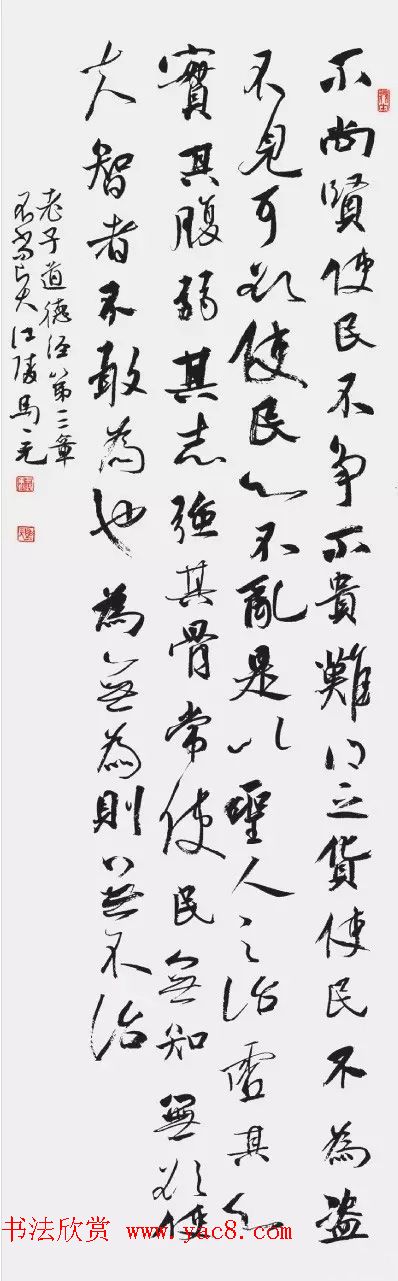 不尚賢使民不争不貴難得之貨使民不為盜
不見可欲使民心不亂是以聖人之治虛其心
實其腹弱其志強其骨常使民無知無欲使
夫智者不敢為也為無為則無不治
老子道德经第三章
不尚贤江陵馬
书法欣赏 www.yac8.com